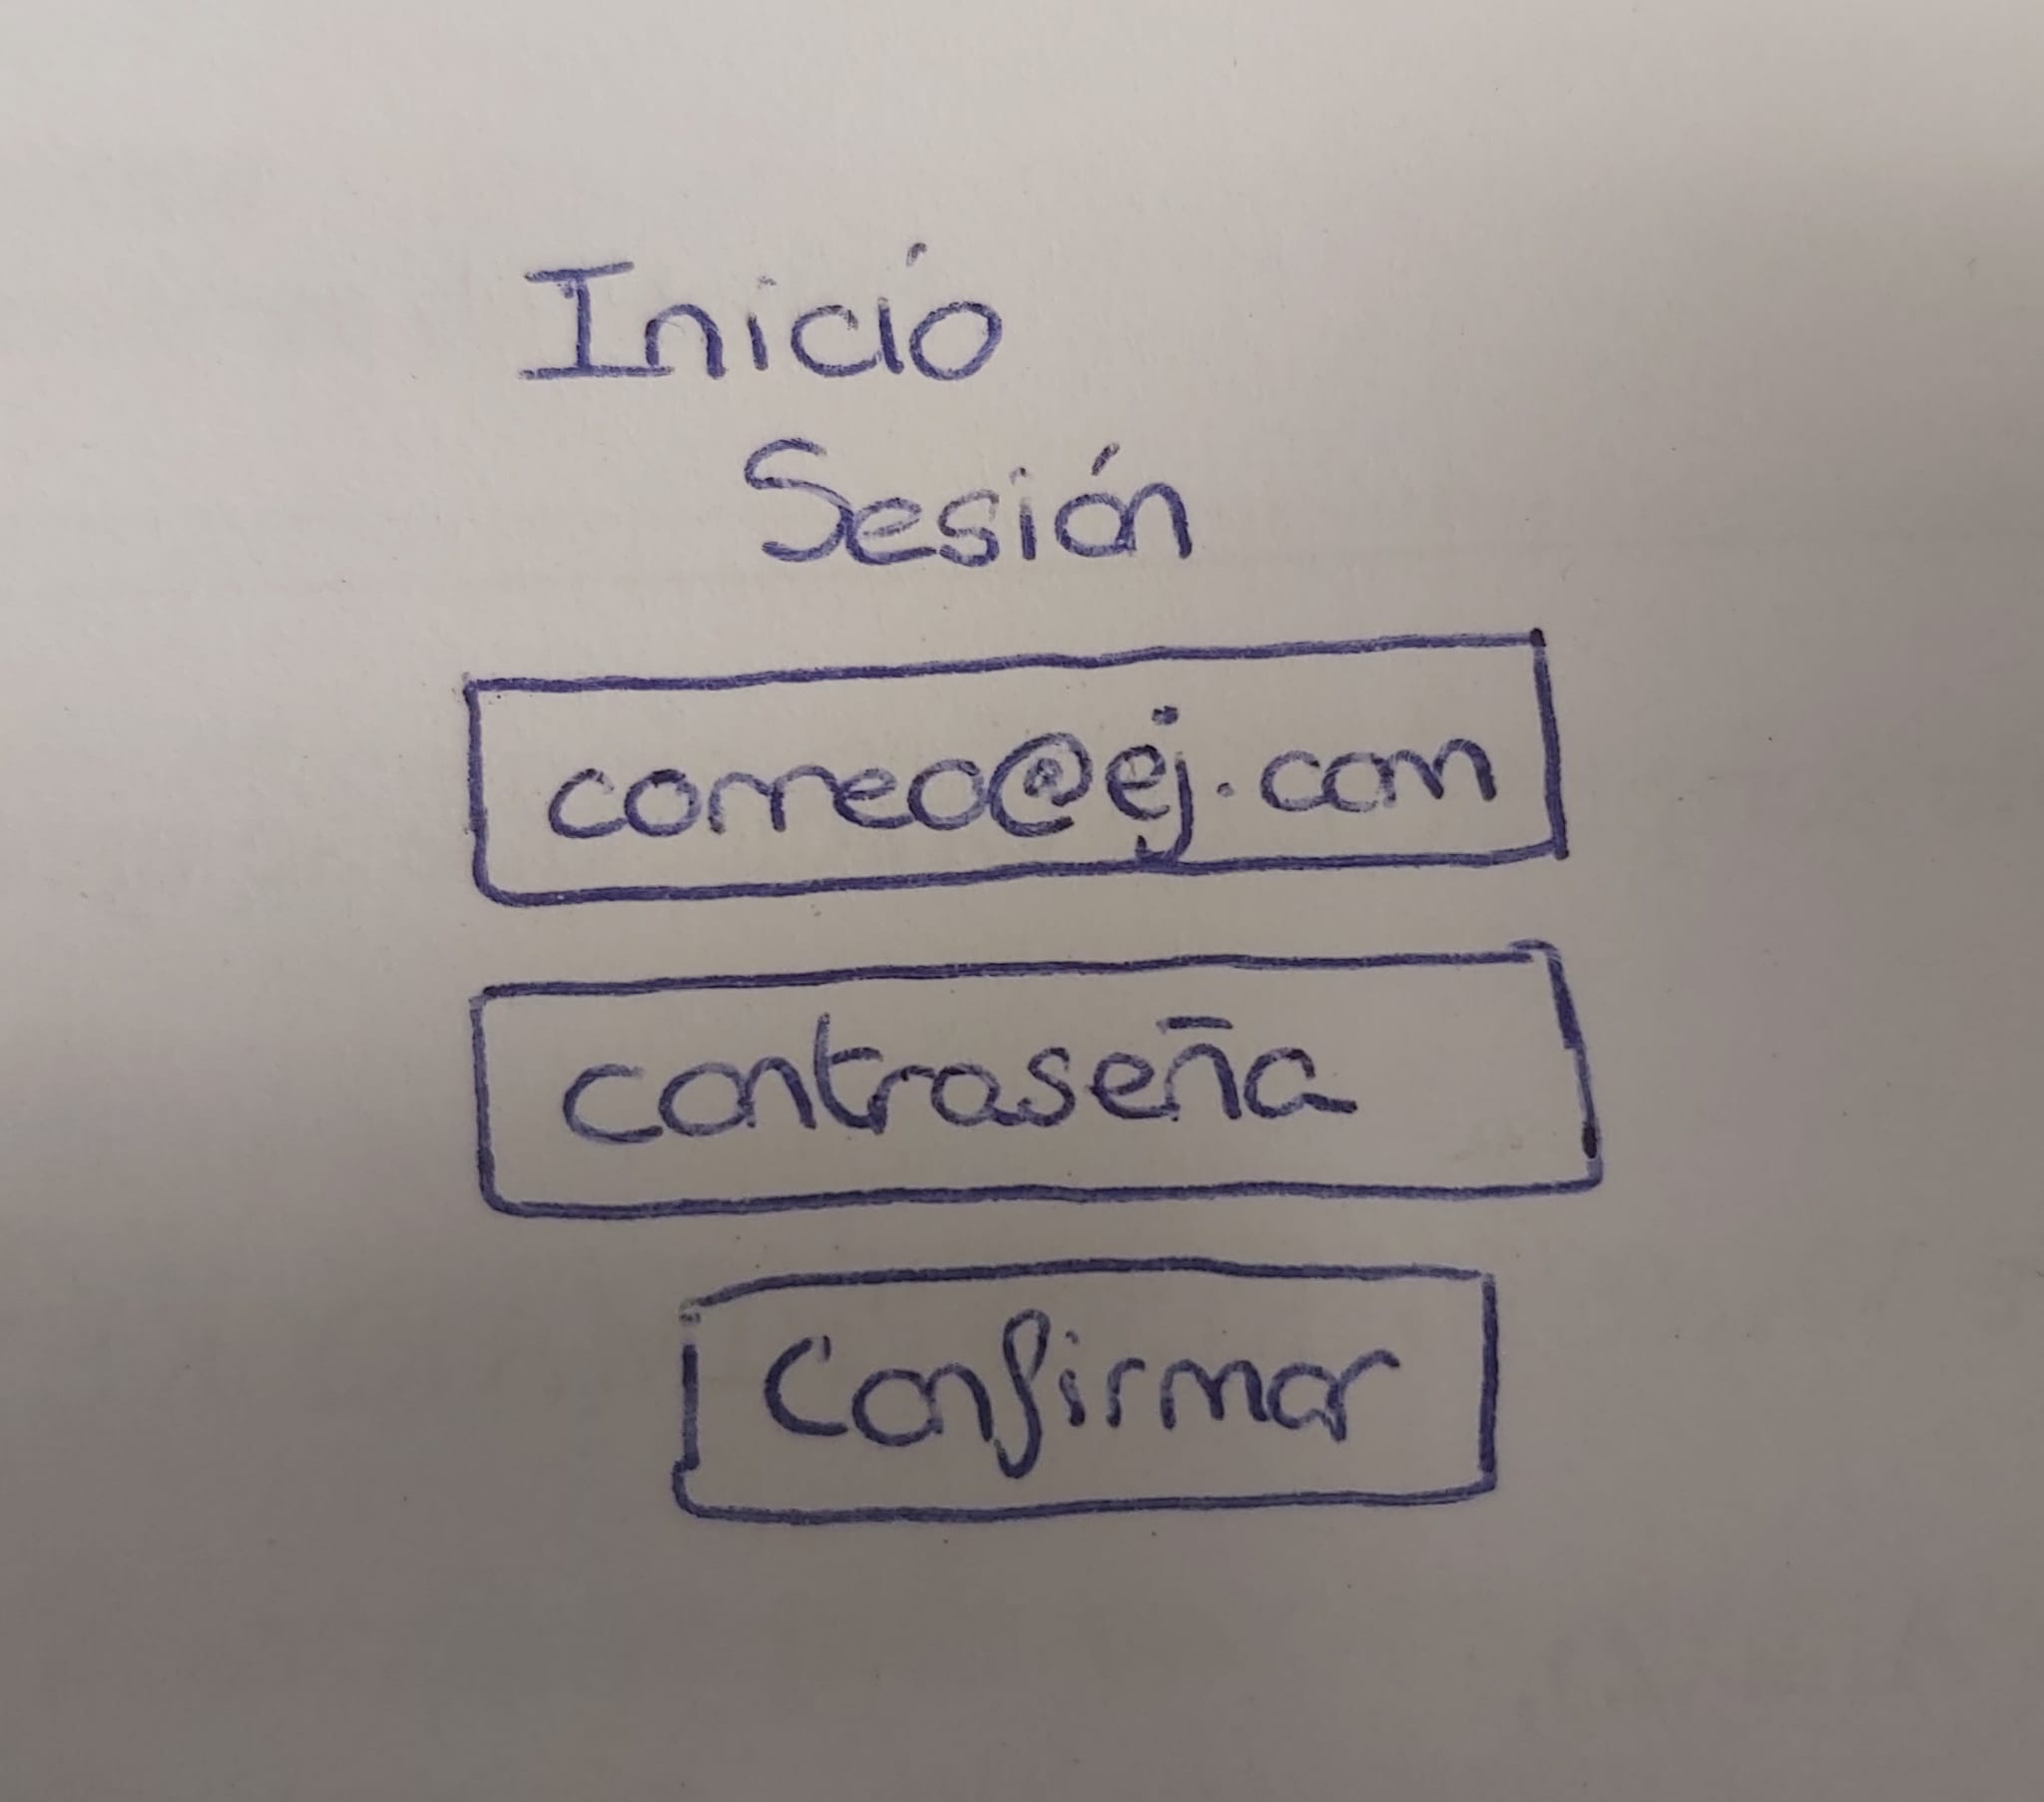 Inició
Sesión
correo@ej.com
contraseña
Confirmar